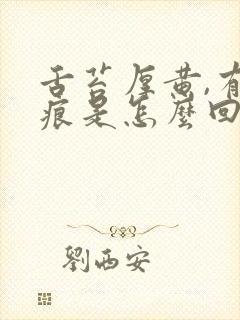 舌苔厚黄,有
痕是怎麼回
劉西安